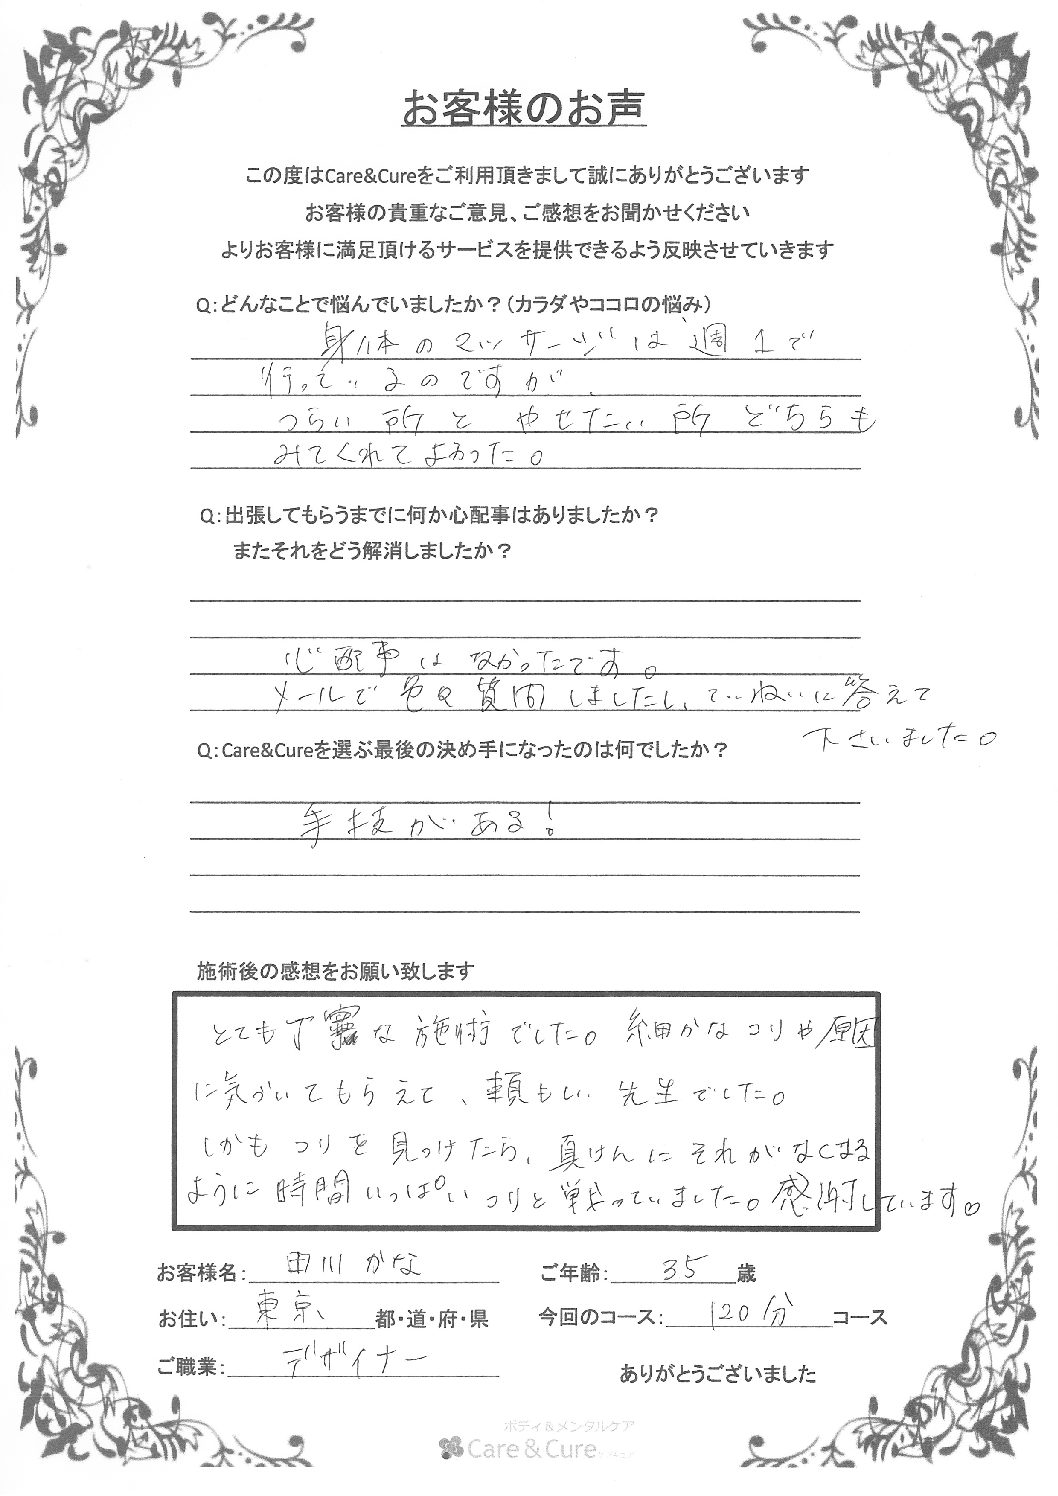 お客様のお声
この度はCare&Cureをご利用頂きまして誠にありがとうございます
お客様の貴重なご意見、ご感想をお聞かせください
よりお客様に満足頂けるサービスを提供できるよう反映させていきます
Q:どんなことで悩んでいましたか？(カラダやココロの悩み)
身体のマッサージは週1で
行っているのですが、
つらい所とやせたい所どちらも
みてくれてよかった。
Q:出張してもらうまでに何か心配事はありましたか？
またそれをどう解消しましたか？
心配事はなかったです。
メールで色々質問しましたし、ていねいに答えて
下さいました。
Q:Care&Cureを選ぶ最後の決め手になったのは何でしたか？
手技がある!
施術後の感想をお願い致します
とても丁寧な施術でした。細かなコリや原因
に気づいてもらえて、頼もしい先生でした。
しかもコリを見つけたら、真けんにそれがなくなる
ように時間いっぱいコリと戦っていました。感謝しています♡
お客様名: 田川かな ご年齢: 35 歳
お住い: 東京 都・道・府・県 今回のコース: 120分 コース
ご職業: デザイナー
ありがとうございました
ボディ&メンタルケア
Care&Cure